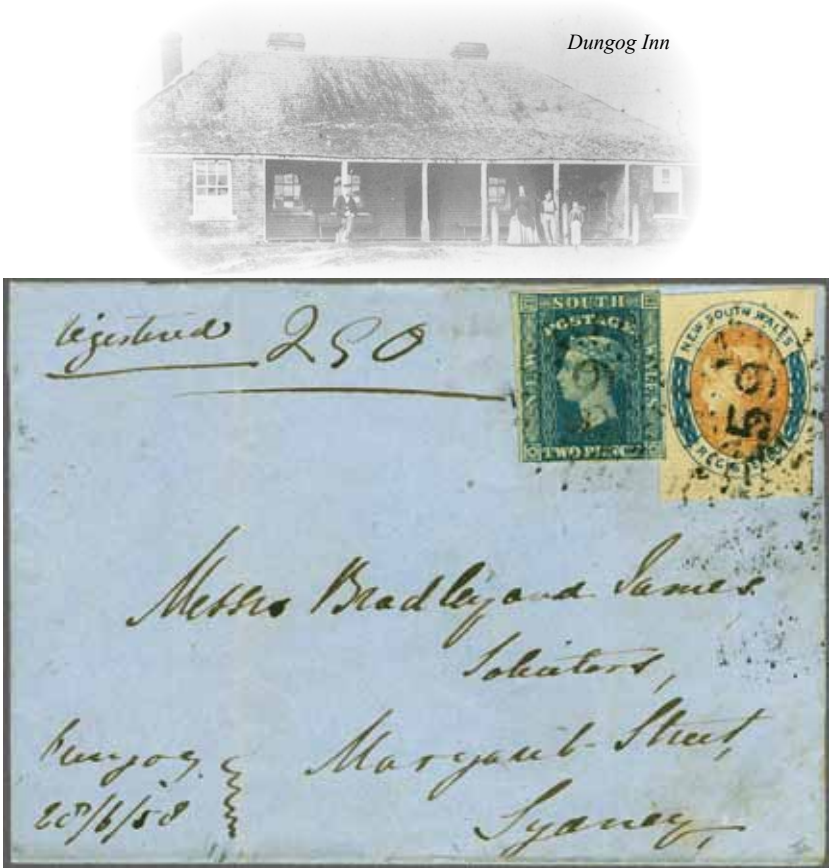 Dungog Inn
registered 250
SOUTH
POSTAGE
NEW
WALES
TWO PENCE
NEW SOUTH WALES
REGISTERED
59
Messrs Bradley and James
Solicitors,
Margaret Street,
Sydney,
Dungog
28/6/58